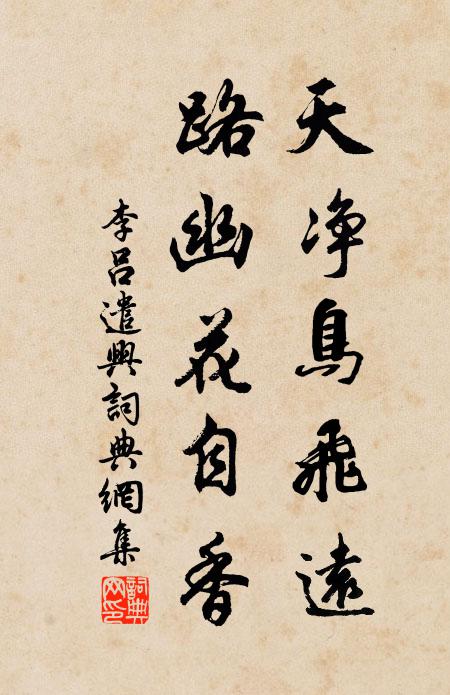 天净鳥飛遠
路幽花自香
李呂遣興詞典網集
詞典网印